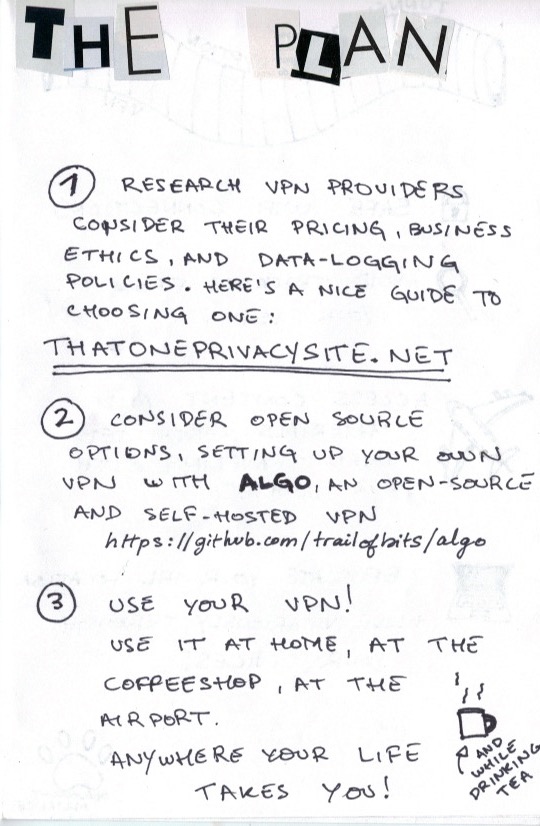 THE PLAN
1 RESEARCH VPN PROVIDERS
CONSIDER THEIR PRICING, BUSINESS
ETHICS, AND DATA-LOGGING
POLICIES. HERE'S A NICE GUIDE TO
CHOOSING ONE:
THATONEPRIVACYSITE.NET
2 CONSIDER OPEN SOURCE
OPTIONS, SETTING UP YOUR OWN
VPN WITH ALGO, AN OPEN-SOURCE
AND SELF-HOSTED VPN
https://github.com/trailofbits/algo
3 USE YOUR VPN!
USE IT AT HOME, AT THE
COFFEESHOP, AT THE
AIRPORT.
ANYWHERE YOUR LIFE
TAKES YOU!
AND
WHILE
DRINKING
TEA